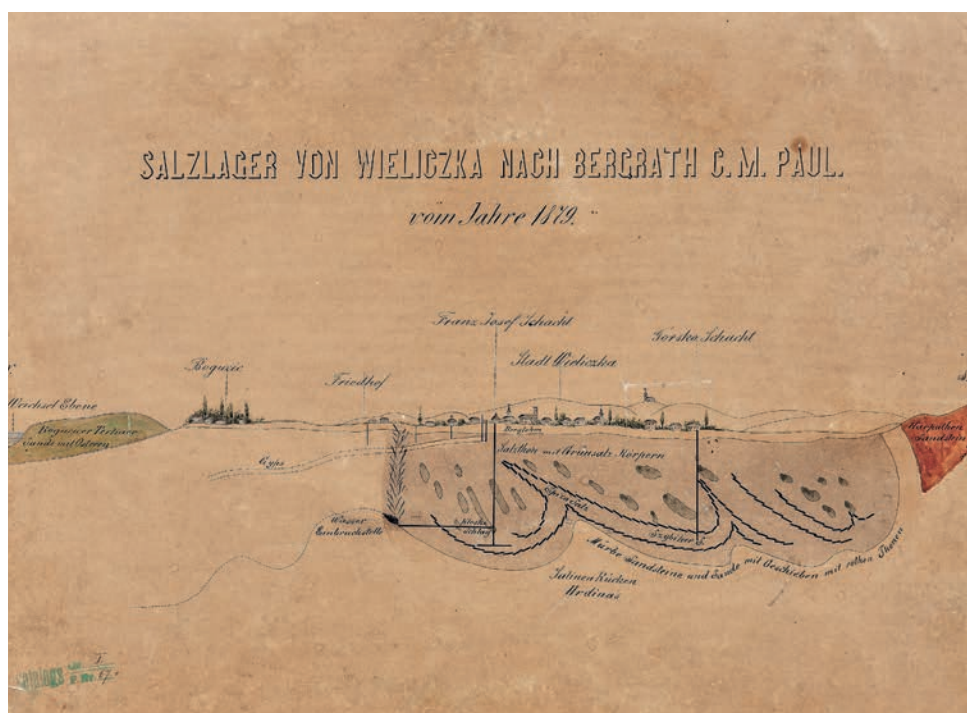 SALZLAGER VON WIELICZKA NACH BERGRATH C. M. PAUL.
vom Jahre 1879.
Franz Josef Schacht
Gorsko Schacht
Stadt Wieliczka
Boguzic
Friedhof
Weichsel Ebene
Tertiaer
Sande mit Ostreen
Karpathen
Sandstein
Salzthon mit Grünsalz Körpern
Gyps
Spiza Salz
Wasser
Einbruchstelle
Kloski
Schlag
Mürbe Sandsteine und Sande mit Geschieben mit rothen Thonen
Salinen Rücken
Urdinas